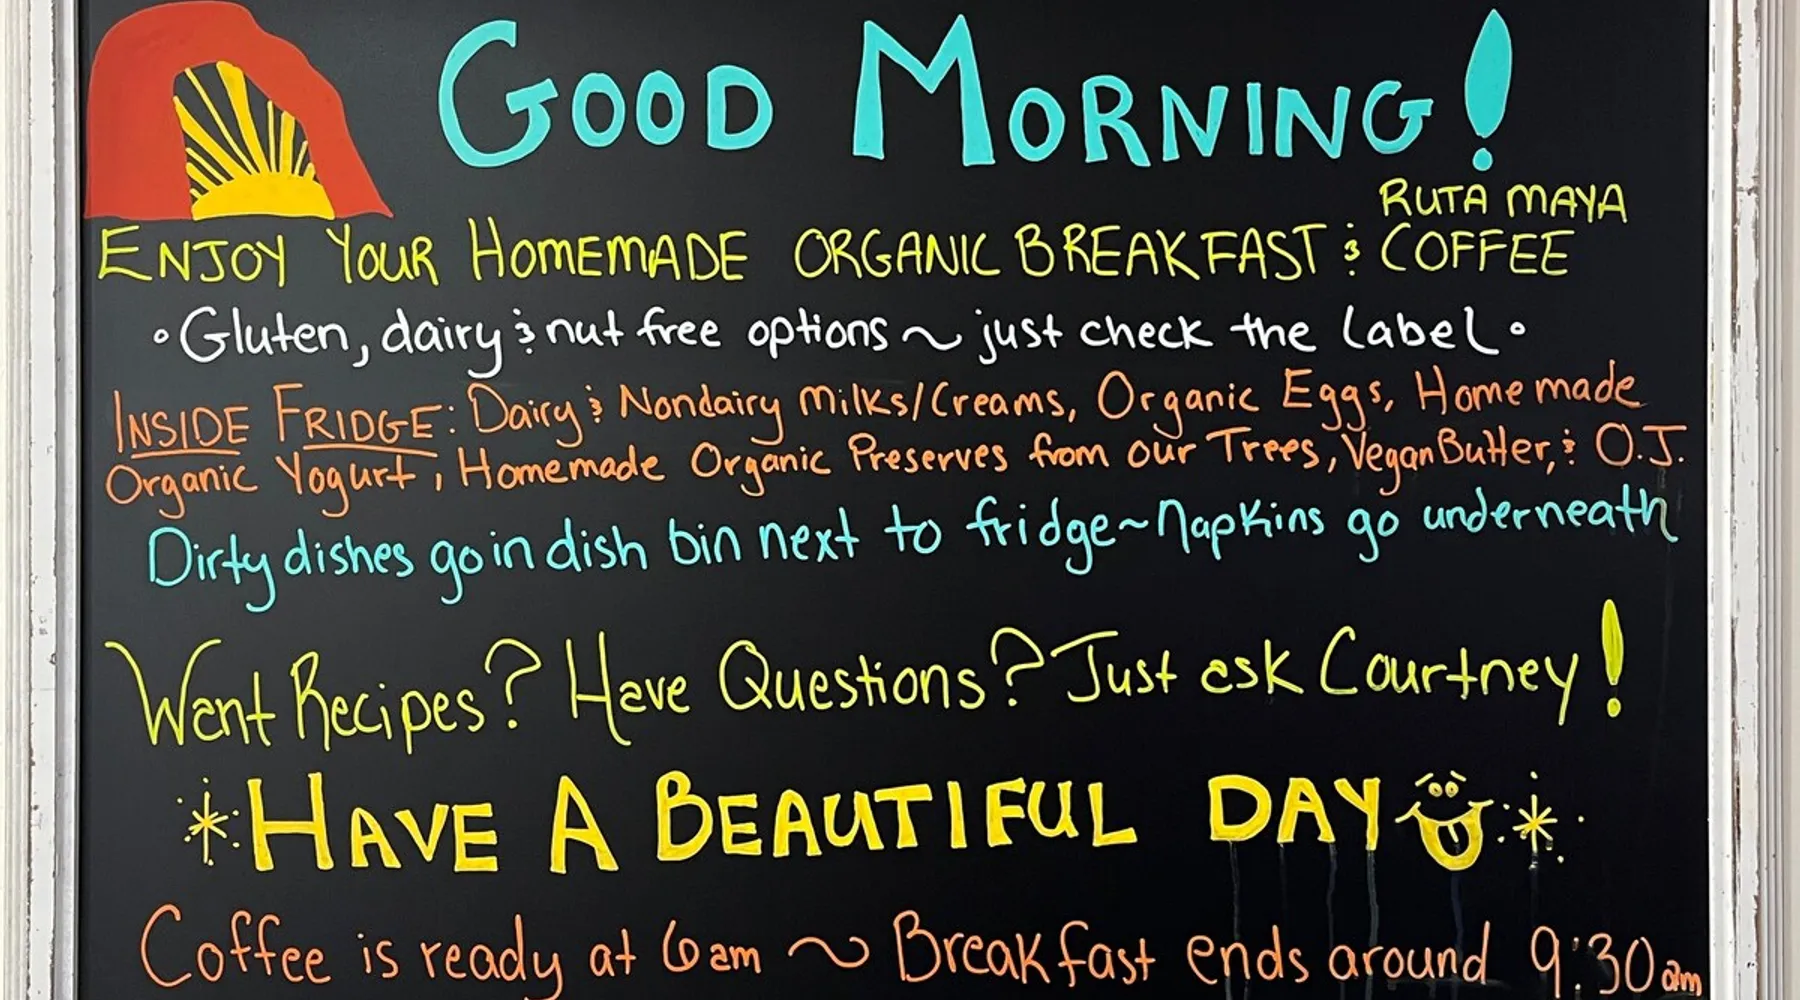 GOOD MORNING!
ENJOY YOUR HOMEMADE ORGANIC BREAKFAST & RUTA MAYA COFFEE
• Gluten, dairy & nut free options ~ just check the label •
INSIDE FRIDGE: Dairy & Nondairy Milks/Creams, Organic Eggs, Homemade
Organic Yogurt, Homemade Organic Preserves from our Trees, Vegan Butter, & O.J.
Dirty dishes go in dish bin next to fridge ~ Napkins go underneath
Want Recipes? Have Questions? Just ask Courtney!
HAVE A BEAUTIFUL DAY
Coffee is ready at 6am ~ Breakfast ends around 9:30am